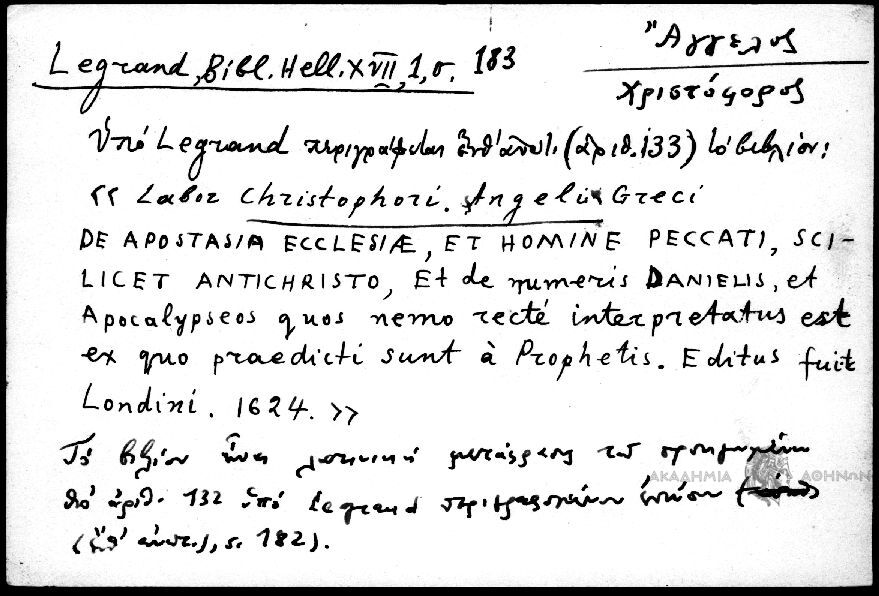 Legrand, Bibl. Hell. XVII, 1, σ. 183
Ἄγγελος
Χριστόφορος
Ὑπό Legrand περιγράφεται ἔνθ' ἀνωτ. (ἀριθ. 133) τό βιβλίον:
<< Labor Christophori. Angeli Greci
DE APOSTASIA ECCLESIÆ, ET HOMINE PECCATI, SCI-
LICET ANTICHRISTO, Et de numeris DANIELIS, et
Apocalypseos quos nemo recté interpretatus est
ex quo praedicti sunt à Prophetis. Editus fuit
Londini. 1624. >>
Τό βιβλίον εἶναι λατινική μετάφρασις τοῦ προηγουμένου
ὑπό ἀριθ. 132 ὑπό Legrand περιγραφομένου
(ἔνθ' ἀνωτ., σ. 182).
ΑΚΑΔΗΜΙΑ ΑΘΗΝΩΝ